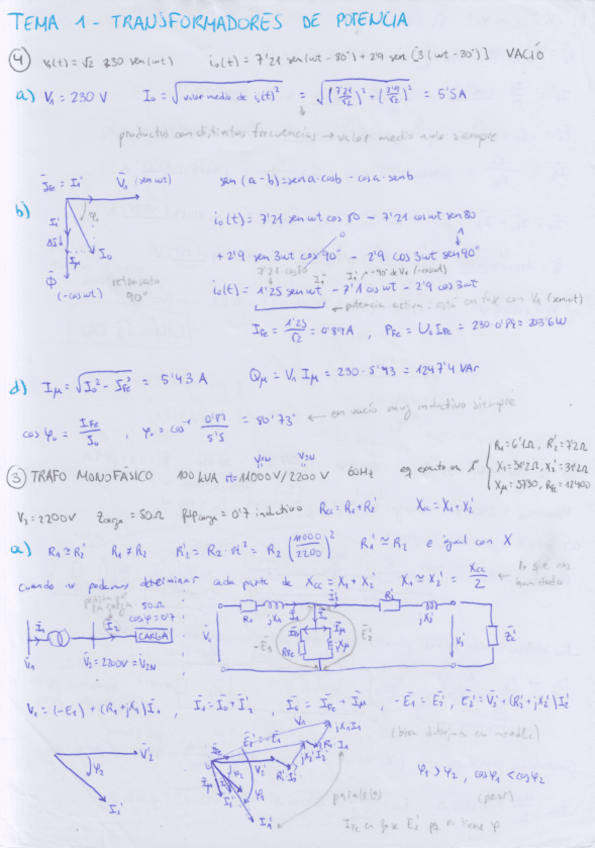 TEMA 1 - TRANSFORMADORES DE POTENCIA
4 v₁(t) = √2 230 sen(wt) i₀(t) = 7'21 sen(wt - 80°) + 2'9 sen [3(wt - 30°)] VACÍO
a) V₁ = 230 V I₀ = √valor medio de i₀(t)² = √(7'21/√2)² + (2'9/√2)² = 5'5A
productos con distintas frecuencias → valor medio nulo siempre
I̅Fe = I₁' V̅₁ (sen wt) sen (a-b) = sen a · cos b - cos a · sen b
b) i₀(t) = 7'21 sen wt cos 80 - 7'21 cos wt sen 80
+ 2'9 sen 3wt cos 90° - 2'9 cos 3wt sen 90°
φ̅ (-cos wt) retrasado 90°
i₀(t) = 1'25 sen wt - 7'1 cos wt - 2'9 cos 3wt
potencia activa: está en fase con V₁ (sen wt)
IFe = 1'25/√2 = 0'89A , PFe = V₁ IFe = 230 · 0'89 = 203'6W
d) Iμ = √I₀² - IFe² = 5'43 A Qμ = V₁ Iμ = 230 · 5'43 = 1247'4 VAr
cos φ₀ = IFe/I₀ , φ₀ = cos⁻¹ 0'89/5'5 = 80'73° ← en vacío muy inductivo siempre
V₁N V₂N
R₁ = 6'1Ω, R₂' = 7'2Ω
3 TRAFO MONOFÁSICO 100 kVA rt = 11000V/2200 V 60Hz eq exacto en 1°
X₁ = 31'2Ω, X₂' = 31'2Ω
Xμ = 5730, RFe = 12400
V₂ = 2200V Zcarga = 50Ω fdp carga = 0'7 inductivo Rcc = R₁ + R₂' Xcc = X₁ + X₂'
a) R₁ ≅ R₂' R₁ ≠ R₂ R₂' = R₂ · rt² = R₂ (11000/2200)² R₁' ≅ R₂ e igual con X
Cuando no podemos determinar cada parte de Xcc = X₁ + X₂' X₁ ≅ X₂' = Xcc/2 lo que nos han dado
I̅₁ I̅₂ 50Ω cos φ = 0'7 CARGA
V̅₁ V̅₂ = 2200V = V̅₂N
V̅₁ R₁ jX₁ I̅₁ I̅₂' R₂' jX₂' I̅₀ I̅Fe I̅μ RFe jXμ -E̅₁ E̅₂' V̅₂' Z̅c'
V̅₁ = (-E̅₁) + (R₁ + jX₁)I̅₁ , I̅₁ = I̅₀ + I̅₂' , I̅₀ = I̅Fe + I̅μ , -E̅₁ = E̅₂' , E̅₂' = V̅₂' + (R₂' + jX₂')I̅₂'
(bien dibujado en moodle)
V̅₂' φ₂ I̅₂'
V₁ jX₁I₁ R₁I₁ jX₂'I₂' R₂'I₂' E̅₂' = -E̅₁ V₂' φ₂ φ₁ I₁
φ₁ > φ₂ , cos φ₁ < cos φ₂
(peor)
IFe en fase E₂'